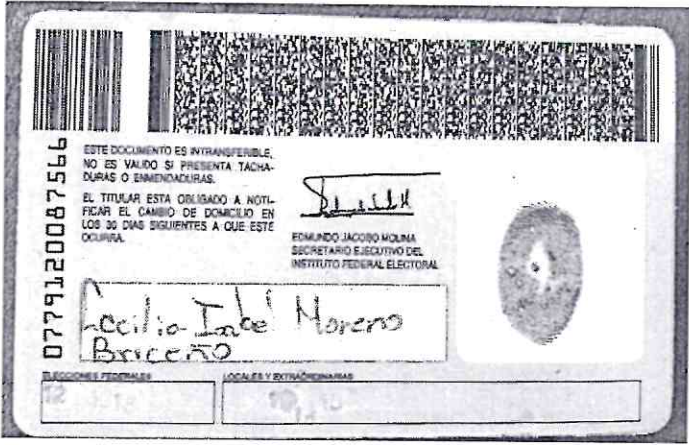 0779120087566
ESTE DOCUMENTO ES INTRANSFERIBLE,
NO ES VALIDO SI PRESENTA TACHA-
DURAS O ENMENDADURAS.
EL TITULAR ESTA OBLIGADO A NOTI-
FICAR EL CAMBIO DE DOMICILIO EN
LOS 30 DIAS SIGUIENTES A QUE ESTE
OCURRA.
EDMUNDO JACOBO MOLINA
SECRETARIO EJECUTIVO DEL
INSTITUTO FEDERAL ELECTORAL
Moreno
Briceño
ELECCIONES FEDERALES
LOCALES Y EXTRAORDINARIAS
12